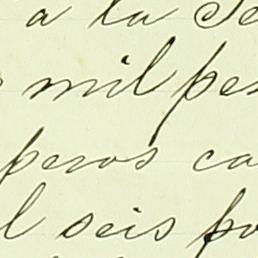 a la Se
mil pes
pesos ca
l seis po